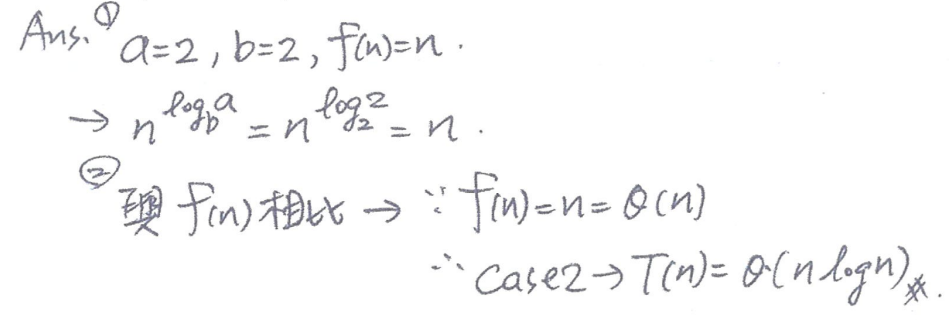 Ans. ① a=2, b=2, f(n)=n.
→ n^{log_b a} = n^{log_2 2} = n.
② 與 f(n) 相比 → ∵ f(n)=n=θ(n)
∴ case2 → T(n)=θ(n log n)※.